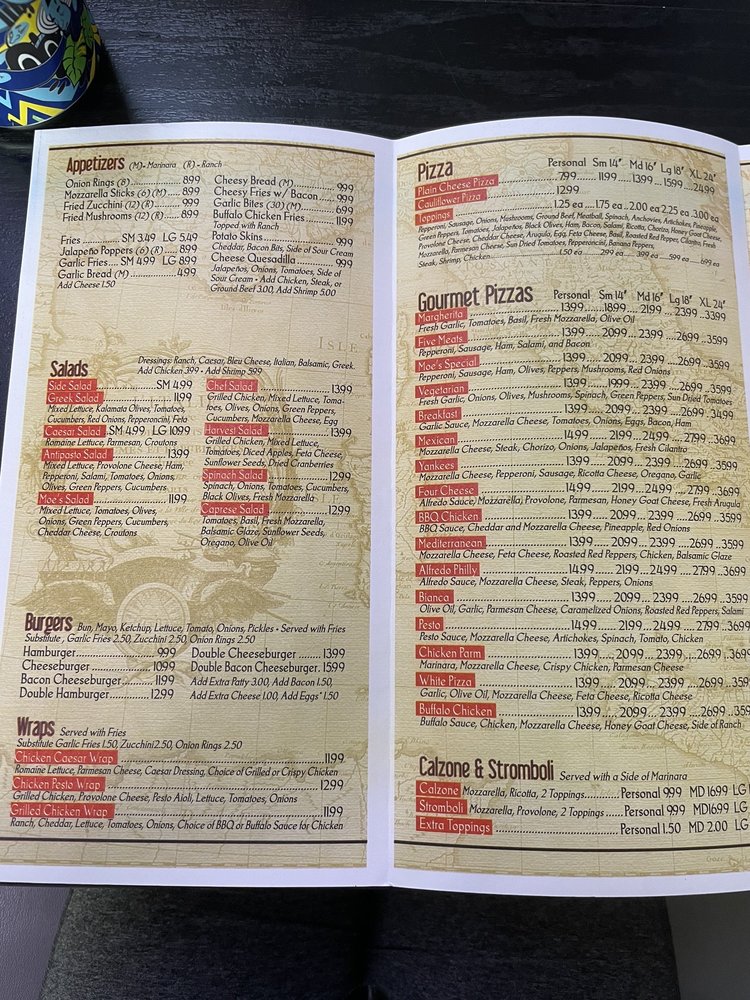 Appetizers (M)- Marinara (R) - Ranch
Onion Rings (8) 8.99
Mozzarella Sticks (6) (M) 8.99
Fried Zucchini (12) (R) 9.99
Fried Mushrooms (12) (R) 8.99
Fries SM 3.49 LG 5.49
Jalapeño Poppers (6) (R) 8.99
Garlic Fries SM 4.99 LG 8.99
Garlic Bread (M) 4.99
Add Cheese 1.50
Cheesy Bread (M) 9.99
Cheesy Fries w/ Bacon 9.99
Garlic Bites (30) (M) 6.99
Buffalo Chicken Fries 11.99
Topped with Ranch
Potato Skins 9.99
Cheddar, Bacon Bits, Side of Sour Cream
Cheese Quesadilla 9.99
Jalapeños, Onions, Tomatoes, Side of
Sour Cream - Add Chicken, Steak, or
Ground Beef 3.00, Add Shrimp 5.00
ISLE
Salads Dressings: Ranch, Caesar, Bleu Cheese, Italian, Balsamic, Greek.
Add Chicken 3.99 - Add Shrimp 5.99
Side Salad SM 4.99
Greek Salad 11.99
Mixed Lettuce, Kalamata Olives, Tomatoes,
Cucumbers, Red Onions, Pepperoncini, Feta
Caesar Salad SM 4.99 LG 10.99
Romaine Lettuce, Parmesan, Croutons
Antipasto Salad 13.99
Mixed Lettuce, Provolone Cheese, Ham,
Pepperoni, Salami, Tomatoes, Onions,
Olives, Green Peppers, Cucumbers
Moe's Salad 11.99
Mixed Lettuce, Tomatoes, Olives,
Onions, Green Peppers, Cucumbers,
Cheddar Cheese, Croutons
Chef Salad 13.99
Grilled Chicken, Mixed Lettuce, Toma-
toes, Olives, Onions, Green Peppers,
Cucumbers, Mozzarella Cheese, Egg
Harvest Salad 13.99
Grilled Chicken, Mixed Lettuce,
Tomatoes, Diced Apples, Feta Cheese,
Sunflower Seeds, Dried Cranberries
Spinach Salad 12.99
Spinach, Onions, Tomatoes, Cucumbers,
Black Olives, Fresh Mozzarella
Caprese Salad 12.99
Tomatoes, Basil, Fresh Mozzarella,
Balsamic Glaze, Sunflower Seeds,
Oregano, Olive Oil
Burgers Bun, Mayo, Ketchup, Lettuce, Tomato, Onions, Pickles - Served with Fries
Substitute , Garlic Fries 2.50, Zucchini 2.50, Onion Rings 2.50
Hamburger 9.99
Cheeseburger 10.99
Bacon Cheeseburger 11.99
Double Hamburger 12.99
Double Cheeseburger 13.99
Double Bacon Cheeseburger 15.99
Add Extra Patty 3.00, Add Bacon 1.50,
Add Extra Cheese 1.00, Add Eggs* 1.50
Wraps Served with Fries
Substitute Garlic Fries 1.50, Zucchini 2.50, Onion Rings 2.50
Chicken Caesar Wrap 11.99
Romaine Lettuce, Parmesan Cheese, Caesar Dressing, Choice of Grilled or Crispy Chicken
Chicken Pesto Wrap 12.99
Grilled Chicken, Provolone Cheese, Pesto Aioli, Lettuce, Tomatoes, Onions
Grilled Chicken Wrap 11.99
Ranch, Cheddar, Lettuce, Tomatoes, Onions, Choice of BBQ or Buffalo Sauce for Chicken
Pizza Personal Sm 14" Md 16" Lg 18" XL 24"
Plain Cheese Pizza 7.99 11.99 13.99 15.99 24.99
Cauliflower Pizza 12.99
Toppings 1.25 ea 1.75 ea 2.00 ea 2.25 ea 3.00 ea
Pepperoni, Sausage, Onions, Mushrooms, Ground Beef, Meatball, Spinach, Anchovies, Artichokes, Pineapple,
Green Peppers, Tomatoes, Jalapeños, Black Olives, Ham, Bacon, Salami, Ricotta, Chorizo, Honey Goat Cheese,
Provolone Cheese, Cheddar Cheese, Arugula, Egg, Feta Cheese, Basil, Roasted Red Pepper, Cilantro, Fresh
Mozzarella, Parmesan Cheese, Sun Dried Tomatoes, Pepperoncini, Banana Peppers,
Steak, Shrimp, Chicken 1.50 ea 2.99 ea 3.99 ea 5.99 ea 6.99 ea
Gourmet Pizzas Personal Sm 14" Md 16" Lg 18" XL 24"
Margherita 13.99 18.99 21.99 23.99 33.99
Fresh Garlic, Tomatoes, Basil, Fresh Mozzarella, Olive Oil
Five Meats 13.99 20.99 23.99 26.99 35.99
Pepperoni, Sausage, Ham, Salami, and Bacon
Moe's Special 13.99 20.99 23.99 26.99 35.99
Pepperoni, Sausage, Ham, Olives, Peppers, Mushrooms, Red Onions
Vegetarian 13.99 19.99 23.99 26.99 35.99
Fresh Garlic, Onions, Olives, Mushrooms, Spinach, Green Peppers, Sun Dried Tomatoes
Breakfast 13.99 20.99 23.99 26.99 34.99
Garlic Sauce, Mozzarella Cheese, Tomatoes, Onions, Eggs, Bacon, Ham
Mexican 14.99 21.99 24.99 27.99 36.99
Mozzarella Cheese, Steak, Chorizo, Onions, Jalapeños, Fresh Cilantro
Yankees 13.99 20.99 23.99 26.99 35.99
Mozzarella Cheese, Pepperoni, Sausage, Ricotta Cheese, Oregano, Garlic
Four Cheese 14.99 21.99 24.99 27.99 36.99
Alfredo Sauce, Mozzarella, Provolone, Parmesan, Honey Goat Cheese, Fresh Arugula
BBQ Chicken 13.99 20.99 23.99 26.99 35.99
BBQ Sauce, Cheddar and Mozzarella Cheese, Pineapple, Red Onions
Mediterranean 13.99 20.99 23.99 26.99 35.99
Mozzarella Cheese, Feta Cheese, Roasted Red Peppers, Chicken, Balsamic Glaze
Alfredo Philly 14.99 21.99 24.99 27.99 36.99
Alfredo Sauce, Mozzarella Cheese, Steak, Peppers, Onions
Bianca 13.99 20.99 23.99 26.99 35.99
Olive Oil, Garlic, Parmesan Cheese, Caramelized Onions, Roasted Red Peppers, Salami
Pesto 14.99 21.99 24.99 27.99 36.9
Pesto Sauce, Mozzarella Cheese, Artichokes, Spinach, Tomato, Chicken
Chicken Parm 13.99 20.99 23.99 26.99 35.9
Marinara, Mozzarella Cheese, Crispy Chicken, Parmesan Cheese
White Pizza 13.99 20.99 23.99 26.99 35.9
Garlic, Olive Oil, Mozzarella Cheese, Feta Cheese, Ricotta Cheese
Buffalo Chicken 13.99 20.99 23.99 26.99 35.9
Buffalo Sauce, Chicken, Mozzarella Cheese, Honey Goat Cheese, Side of Ranch
Calzone & Stromboli Served with a Side of Marinara
Calzone Mozzarella, Ricotta, 2 Toppings Personal 9.99 MD 16.99 LG
Stromboli Mozzarella, Provolone, 2 Toppings Personal 9.99 MD 16.99 LG
Extra Toppings Personal 1.50 MD 2.00 LG